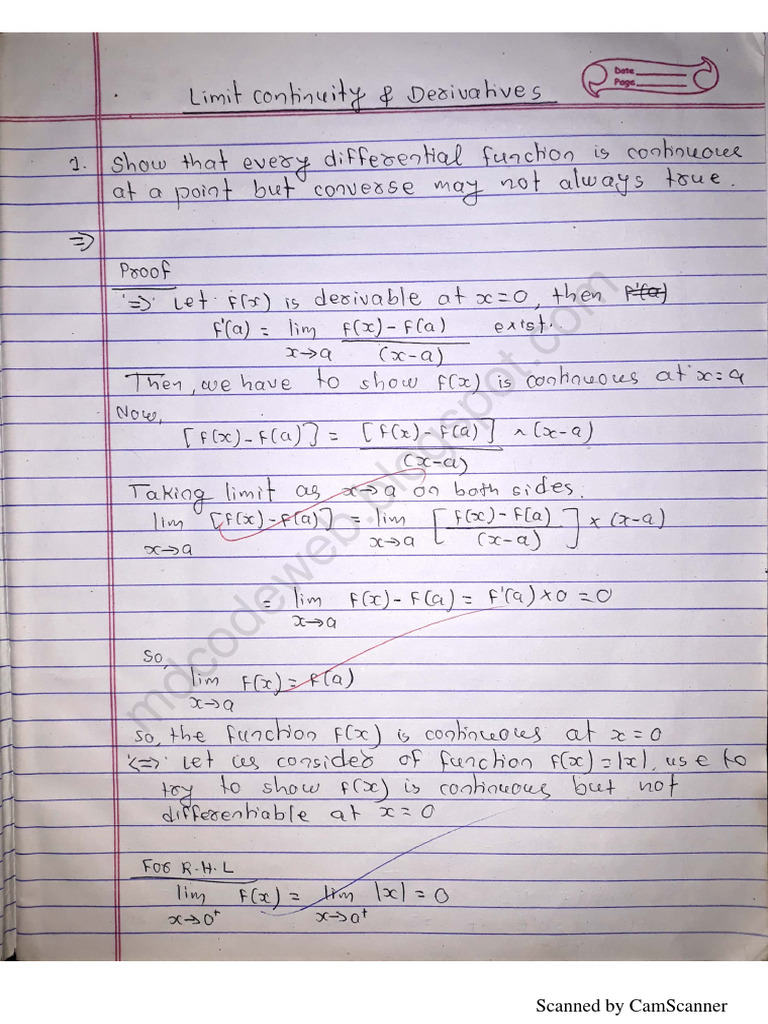 Date
Page
Limit continuity & Derivatives
1. Show that every differential function is continuous
at a point but converse may not always true.
=>
Proof
'=>' Let f(x) is derivable at x=0, then f'(a)
f'(a) = lim f(x)-f(a) exist.
x→a (x-a)
Then, we have to show f(x) is continuous at x=a
Now,
[f(x)-f(a)] = [f(x)-f(a)] × (x-a)
(x-a)
Taking limit as x→a on both sides.
lim [f(x)-f(a)] = lim [f(x)-f(a)] × (x-a)
x→a x→a (x-a)
= lim f(x)-f(a) = f'(a)×0 = 0
x→a
So,
lim f(x) = f(a)
x→a
So, the function f(x) is continuous at x=0
'<=' Let us consider of function f(x)=|x|, use to
try to show f(x) is continuous but not
differentiable at x=0
For R.H.L
lim f(x) = lim |x| = 0
x→0⁺ x→a⁺
mdcodeweb.blogspot.com
Scanned by CamScanner